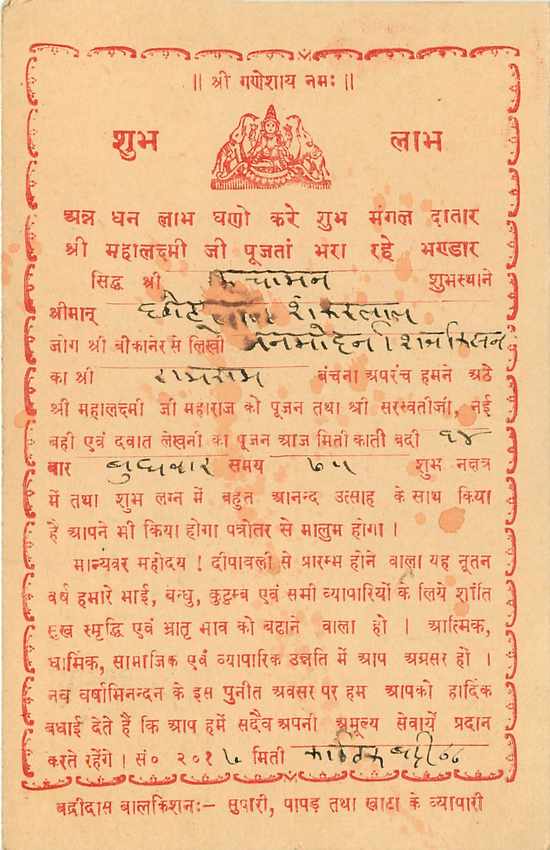 || श्री गणेशाय नमः ||
शुभ लाभ
अन्न धन लाभ घणो करे शुभ मंगल दातार
श्री महालक्ष्मी जी पूजतां भरा रहे भण्डार
सिद्ध श्री शुभस्थाने
श्रीमान् शंकरलाल
जोग श्री बीकानेर से लिखी
का श्री रामराम बंचना अपरंच हमने अठे
श्री महालक्ष्मी जी महाराज को पूजन तथा श्री सरस्वतीजी, नई
बही एवं दवात लेखनी का पूजन आज मिती काती बदी १४
बार बुधवार समय ७५ शुभ नक्षत्र
में तथा शुभ लग्न में बहुत आनन्द उत्साह के साथ किया
है आपने भी किया होगा पत्रोतर से मालुम होगा ।
मान्यवर महोदय ! दीपावली से प्रारम्भ होने वाला यह नूतन
वर्ष हमारे भाई, बन्धु, कुटुम्ब एवं सभी व्यापारियों के लिये शांति
सुख स्मृद्धि एवं भ्रातृ भाव को बढाने वाला हो । आत्मिक,
धार्मिक, सामाजिक एवं व्यापारिक उन्नति में आप अग्रसर हो ।
नव वर्षाभिनन्दन के इस पुनीत अवसर पर हम आपको हार्दिक
बधाई देते हैं कि आप हमें सदैव अपनी अमूल्य सेवायें प्रदान
करते रहेंगे । सं० २०१७ मिती कार्तिक बदी
बद्रीदास बालकिशनः- सुपारी, पापड़ तथा खाटा के व्यापारी